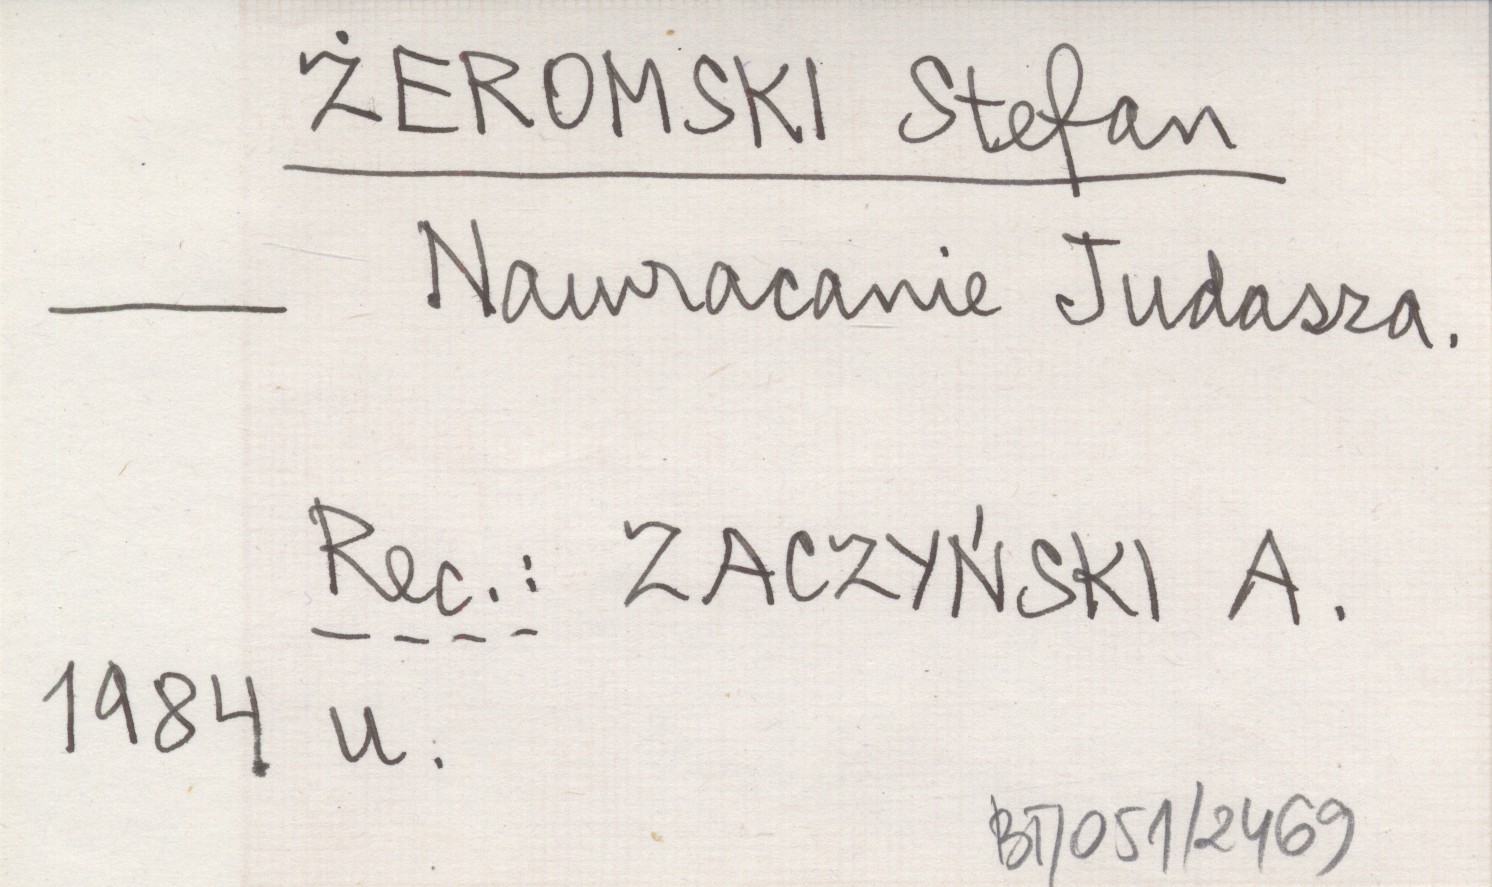 ŻEROMSKI Stefan
Nawracanie Judasza.
Rec.: ZACZYŃSKI A.
1984 u.
BT/051/2469